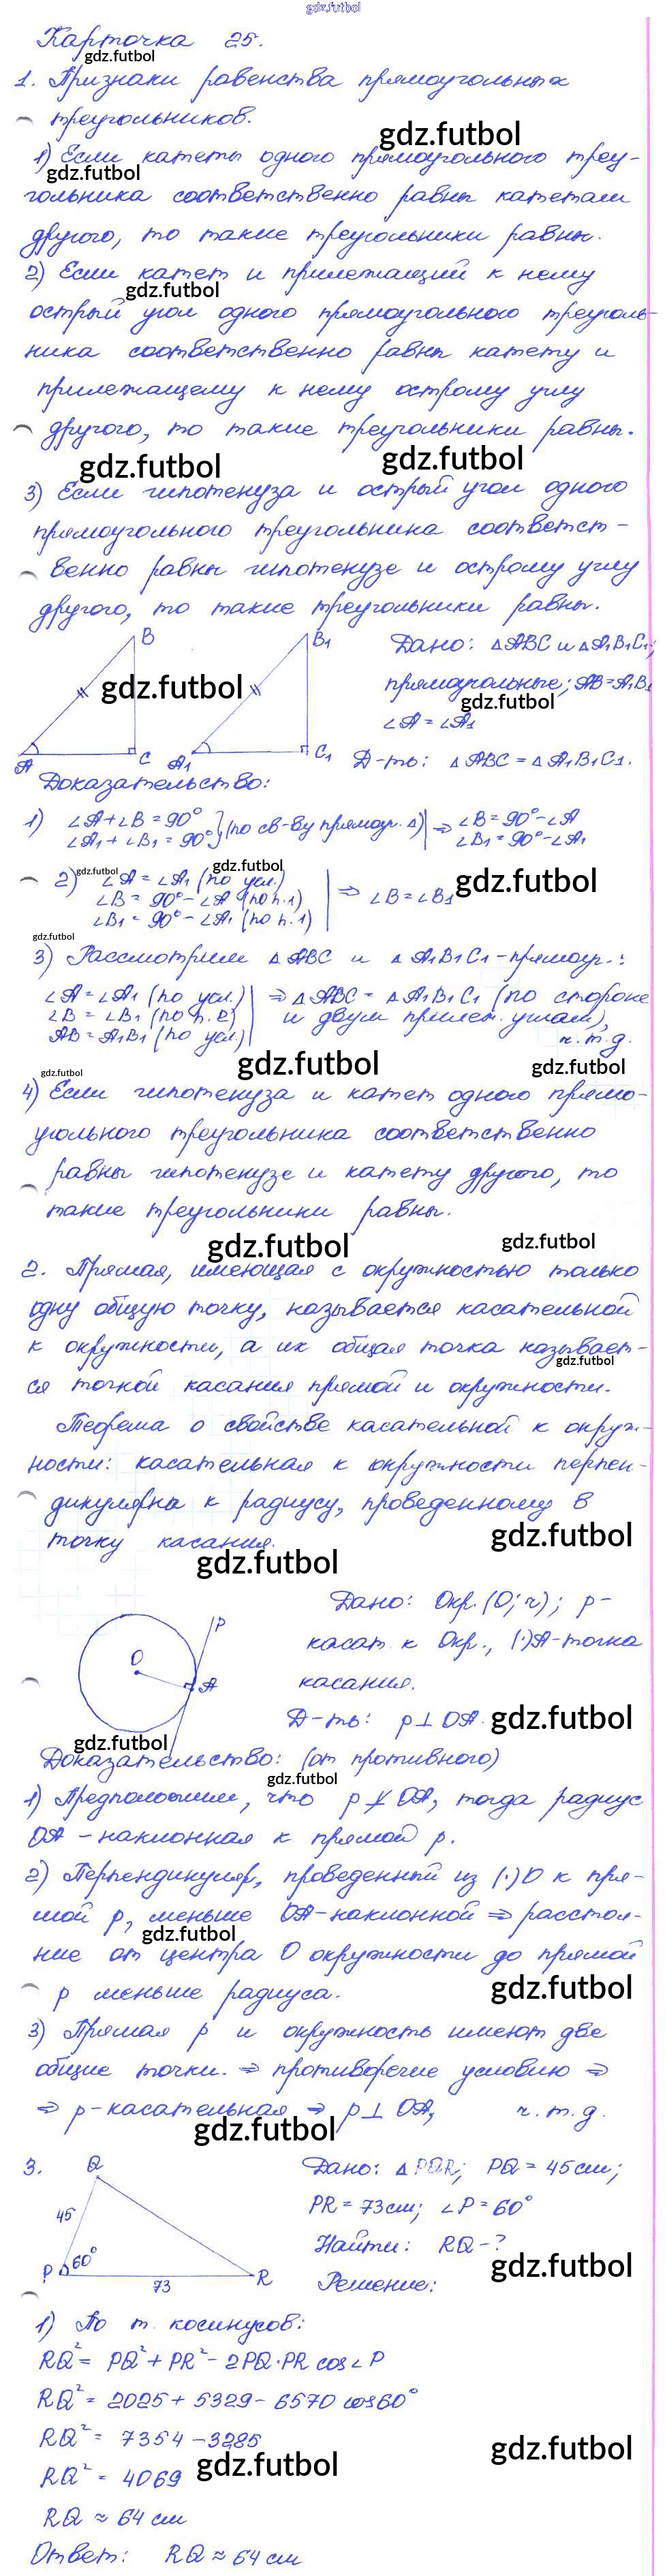 gdz.futbol
Карточка 25.
gdz.futbol
1. Признаки равенства прямоугольных
треугольников.
gdz.futbol
1) Если катеты одного прямоугольного треу-
gdz.futbol
гольника соответственно равны катетам
другого, то такие треугольники равны.
2) Если катет и прилежащий к нему
gdz.futbol
острый угол одного прямоугольного треуголь-
ника соответственно равны катету и
прилежащему к нему острому углу
другого, то такие треугольники равны.
gdz.futbol gdz.futbol
3) Если гипотенуза и острый угол одного
прямоугольного треугольника соответст-
венно равны гипотенузе и острому углу
другого, то такие треугольники равны.
B B1 Дано: △ABC и △A1B1C1;
gdz.futbol прямоугольные; AB=A1B1
gdz.futbol
∠A = ∠A1
A C A1 C1 Д-ть: △ABC = △A1B1C1.
Доказательство:
1) ∠A+∠B=90° } (по св-ву прямоуг. △) | ⇒ ∠B=90°-∠A
∠A1+∠B1=90° ∠B1=90°-∠A1
gdz.futbol gdz.futbol
2) ∠A=∠A1 (по усл.)
∠B = 90°-∠A (по п.1) ⇒ ∠B=∠B1 gdz.futbol
∠B1 = 90°-∠A1 (по п.1)
gdz.futbol
3) Рассмотрим △ABC и △A1B1C1-прямоуг.:
∠A=∠A1 (по усл.) ⇒ △ABC = △A1B1C1 (по стороне
∠B = ∠B1 (по п.2) и двум прилеж. углам),
AB=A1B1 (по усл.) ч.т.д.
gdz.futbol gdz.futbol
gdz.futbol
4) Если гипотенуза и катет одного прямо-
угольного треугольника соответственно
равны гипотенузе и катету другого, то
такие треугольники равны.
gdz.futbol gdz.futbol
2. Прямая, имеющая с окружностью только
одну общую точку, называется касательной
к окружности, а их общая точка называет-
gdz.futbol
ся точкой касания прямой и окружности.
Теорема о свойстве касательной к окруж-
ности: касательная к окружности перпен-
дикулярна к радиусу, проведенному в
точку касания.
gdz.futbol
gdz.futbol
Дано: Окр.(O; r); p-
p
касат. к Окр., (·)A-точка
O
A касания.
Д-ть: p⊥OA. gdz.futbol
gdz.futbol
Доказательство: (от противного)
gdz.futbol
1) Предположим, что p ⊥̸ OA, тогда радиус
OA - наклонная к прямой p.
2) Перпендикуляр, проведенный из (·)O к пря-
мой p, меньше OA-наклонной ⇒ расстоя-
gdz.futbol
ние от центра O окружности до прямой
p меньше радиуса.
gdz.futbol
3) Прямая p и окружность имеют две
общие точки. ⇒ противоречие условию ⇒
⇒ p-касательная ⇒ p⊥OA, ч.т.д.
gdz.futbol
3. Q Дано: △PQR; PQ = 45 см;
45 PR = 73 см; ∠P = 60°
60° Найти: RQ-?
P 73 R gdz.futbol
Решение:
1) По т. косинусов:
RQ² = PQ² + PR² - 2PQ·PR cos∠P
RQ² = 2025 + 5329 - 6570 cos60°
RQ² = 7354 - 3285
gdz.futbol
RQ² = 4069
gdz.futbol
RQ ≈ 64 см
Ответ: RQ ≈ 64 см